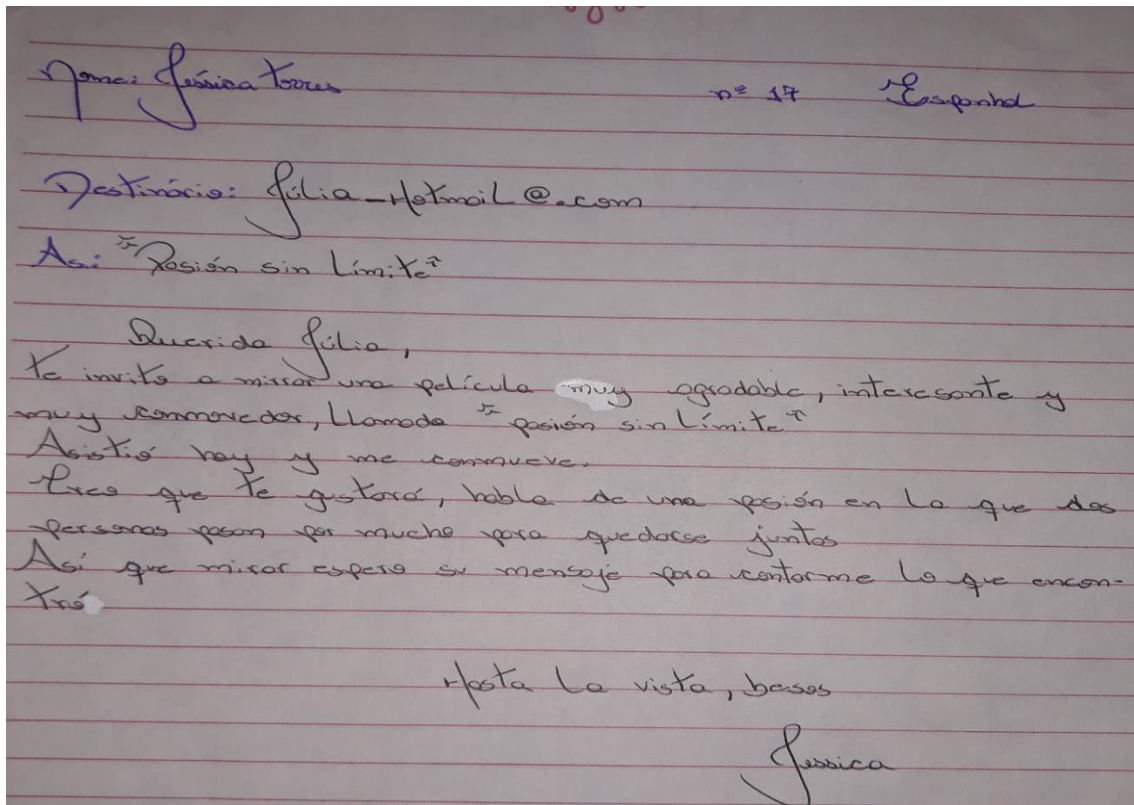 Nome: Jéssica Torres nº 17 Espanhol
Destinário: Júlia-Hotmail@.com
As: "Pasión sin Límite"
Querida Júlia,
te invito a mirrar una película muy agradable, interesante y
muy conmovedor, Llamada "pasión sin Límite"
Asistió hoy y me conmueve.
Creo que te gustará, habla de una pasión en la que dos
personas pasan por mucho para quedarse juntos
Así que mirar espero su mensaje para contarme lo que encon-
tró
Hasta la vista, besos
Jessica